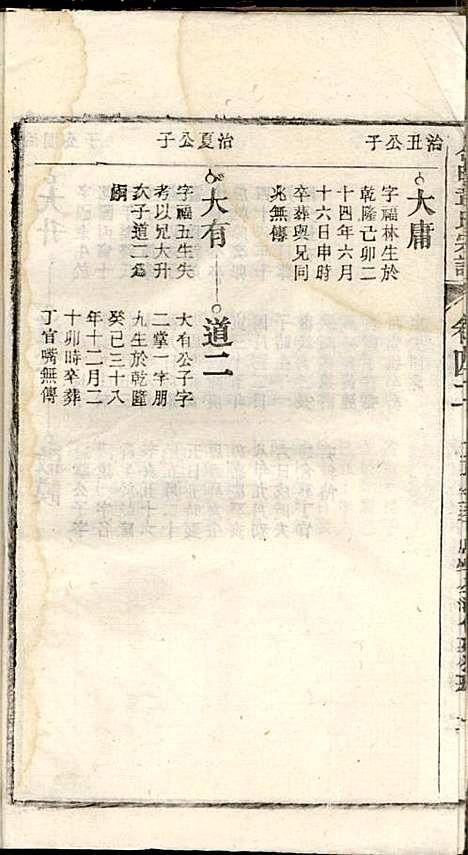 治丑公子
大庸
字福林生於
乾隆己卯二
十四年六月
十六日申時
卒葬與兄同
兆無傳
治夏公子
大有
字福五生失
考以兄大升
次子道二為
嗣
道二
大有公子字
二掌一字朋
九生於乾隆
癸巳三十八
年十二月二
十卯時卒葬
丁官嘴無傳